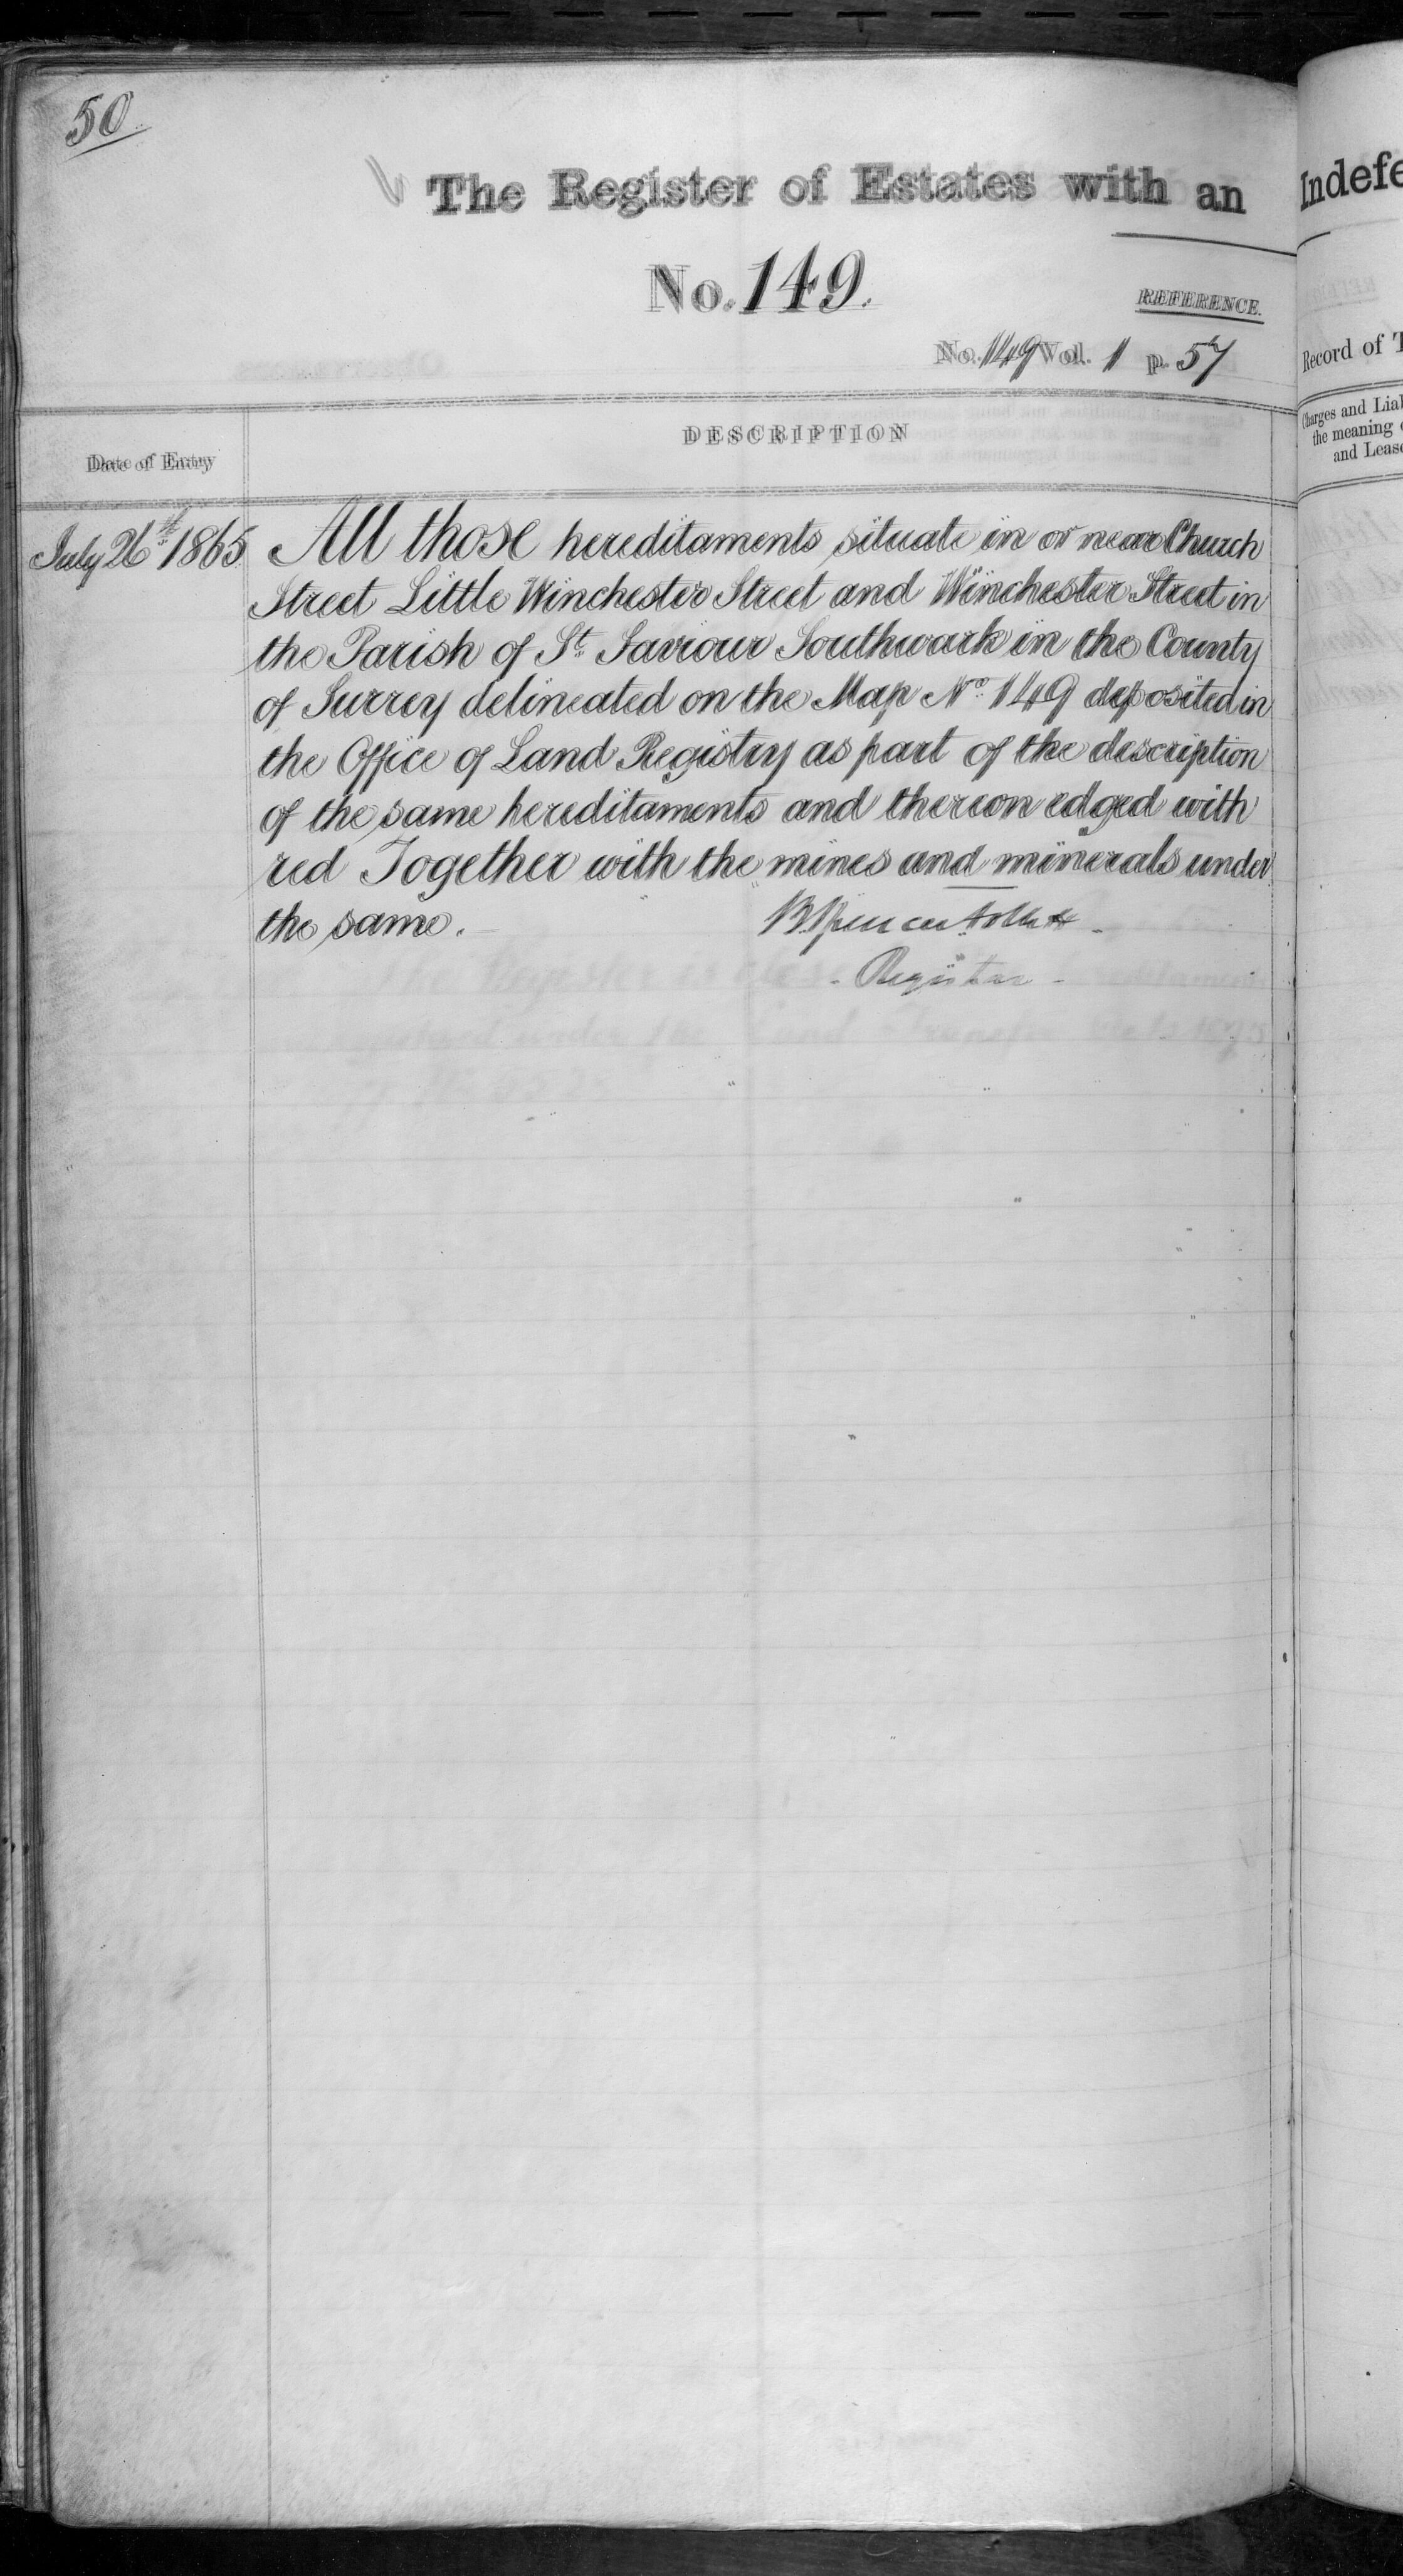 50
The Register of Estates with an
No. 149.
REFERENCE.
No. 149 Vol. 1 p. 57
Date of Entry
DESCRIPTION
July 26th 1865 All those hereditaments situate in or near Church
Street Little Winchester Street and Winchester Street in
the Parish of St. Saviour Southwark in the County
of Surrey delineated on the Map No. 149 deposited in
the Office of Land Registry as part of the description
of the same hereditaments and thereon edged with
red Together with the mines and minerals under
the same.
B Spencer Follett
Registrar
Indefe
Record of T
Charges and Lial
the meaning
and Lease